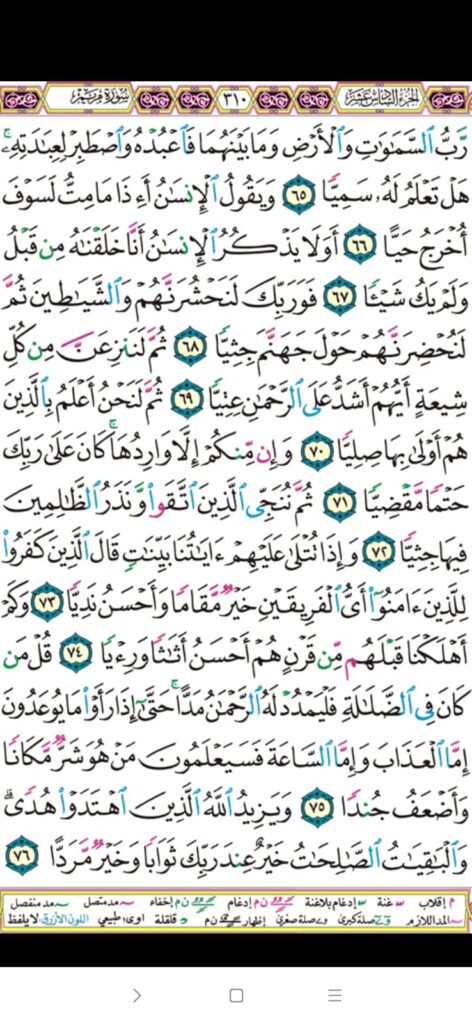 سورة مريم ٣١٠ الجزء السادس عشر
رَّبُّ السَّمَٰوَٰتِ وَالْأَرْضِ وَمَا بَيْنَهُمَا فَاعْبُدْهُ وَاصْطَبِرْ لِعِبَٰدَتِهِۦۚ
هَلْ تَعْلَمُ لَهُۥ سَمِيًّا ٦٥ وَيَقُولُ الْإِنسَٰنُ أَءِذَا مَا مِتُّ لَسَوْفَ
أُخْرَجُ حَيًّا ٦٦ أَوَلَا يَذْكُرُ الْإِنسَٰنُ أَنَّا خَلَقْنَٰهُ مِن قَبْلُ
وَلَمْ يَكُ شَيْـًٔا ٦٧ فَوَرَبِّكَ لَنَحْشُرَنَّهُمْ وَالشَّيَٰطِينَ ثُمَّ
لَنُحْضِرَنَّهُمْ حَوْلَ جَهَنَّمَ جِثِيًّا ٦٨ ثُمَّ لَنَنزِعَنَّ مِن كُلِّ
شِيعَةٍ أَيُّهُمْ أَشَدُّ عَلَى الرَّحْمَٰنِ عِتِيًّا ٦٩ ثُمَّ لَنَحْنُ أَعْلَمُ بِالَّذِينَ
هُمْ أَوْلَىٰ بِهَا صِلِيًّا ٧٠ وَإِن مِّنكُمْ إِلَّا وَارِدُهَاۚ كَانَ عَلَىٰ رَبِّكَ
حَتْمًا مَّقْضِيًّا ٧١ ثُمَّ نُنَجِّي الَّذِينَ اتَّقَوا۟ وَّنَذَرُ الظَّٰلِمِينَ
فِيهَا جِثِيًّا ٧٢ وَإِذَا تُتْلَىٰ عَلَيْهِمْ ءَايَٰتُنَا بَيِّنَٰتٍ قَالَ الَّذِينَ كَفَرُوا۟
لِلَّذِينَ ءَامَنُوٓا۟ أَيُّ الْفَرِيقَيْنِ خَيْرٌ مَّقَامًا وَأَحْسَنُ نَدِيًّا ٧٣ وَكَمْ
أَهْلَكْنَا قَبْلَهُم مِّن قَرْنٍ هُمْ أَحْسَنُ أَثَٰثًا وَرِءْيًا ٧٤ قُلْ مَن
كَانَ فِي الضَّلَٰلَةِ فَلْيَمْدُدْ لَهُ الرَّحْمَٰنُ مَدًّاۚ حَتَّىٰٓ إِذَا رَأَوْا۟ مَا يُوعَدُونَ
إِمَّا الْعَذَابَ وَإِمَّا السَّاعَةَ فَسَيَعْلَمُونَ مَنْ هُوَ شَرٌّ مَّكَانًا
وَأَضْعَفُ جُندًا ٧٥ وَيَزِيدُ اللَّهُ الَّذِينَ اهْتَدَوْا۟ هُدًىۗ
وَالْبَٰقِيَٰتُ الصَّٰلِحَٰتُ خَيْرٌ عِندَ رَبِّكَ ثَوَابًا وَخَيْرٌ مَّرَدًّا ٧٦
م إقلاب غنة إدغام بلاغنة ن م إدغام ن م إخفاء مد متصل مد منفصل
المد اللازم صلة كبرى صلة صغرى إظهار ن م قلقلة طبيعي اللون الأزرق: لا يلفظ